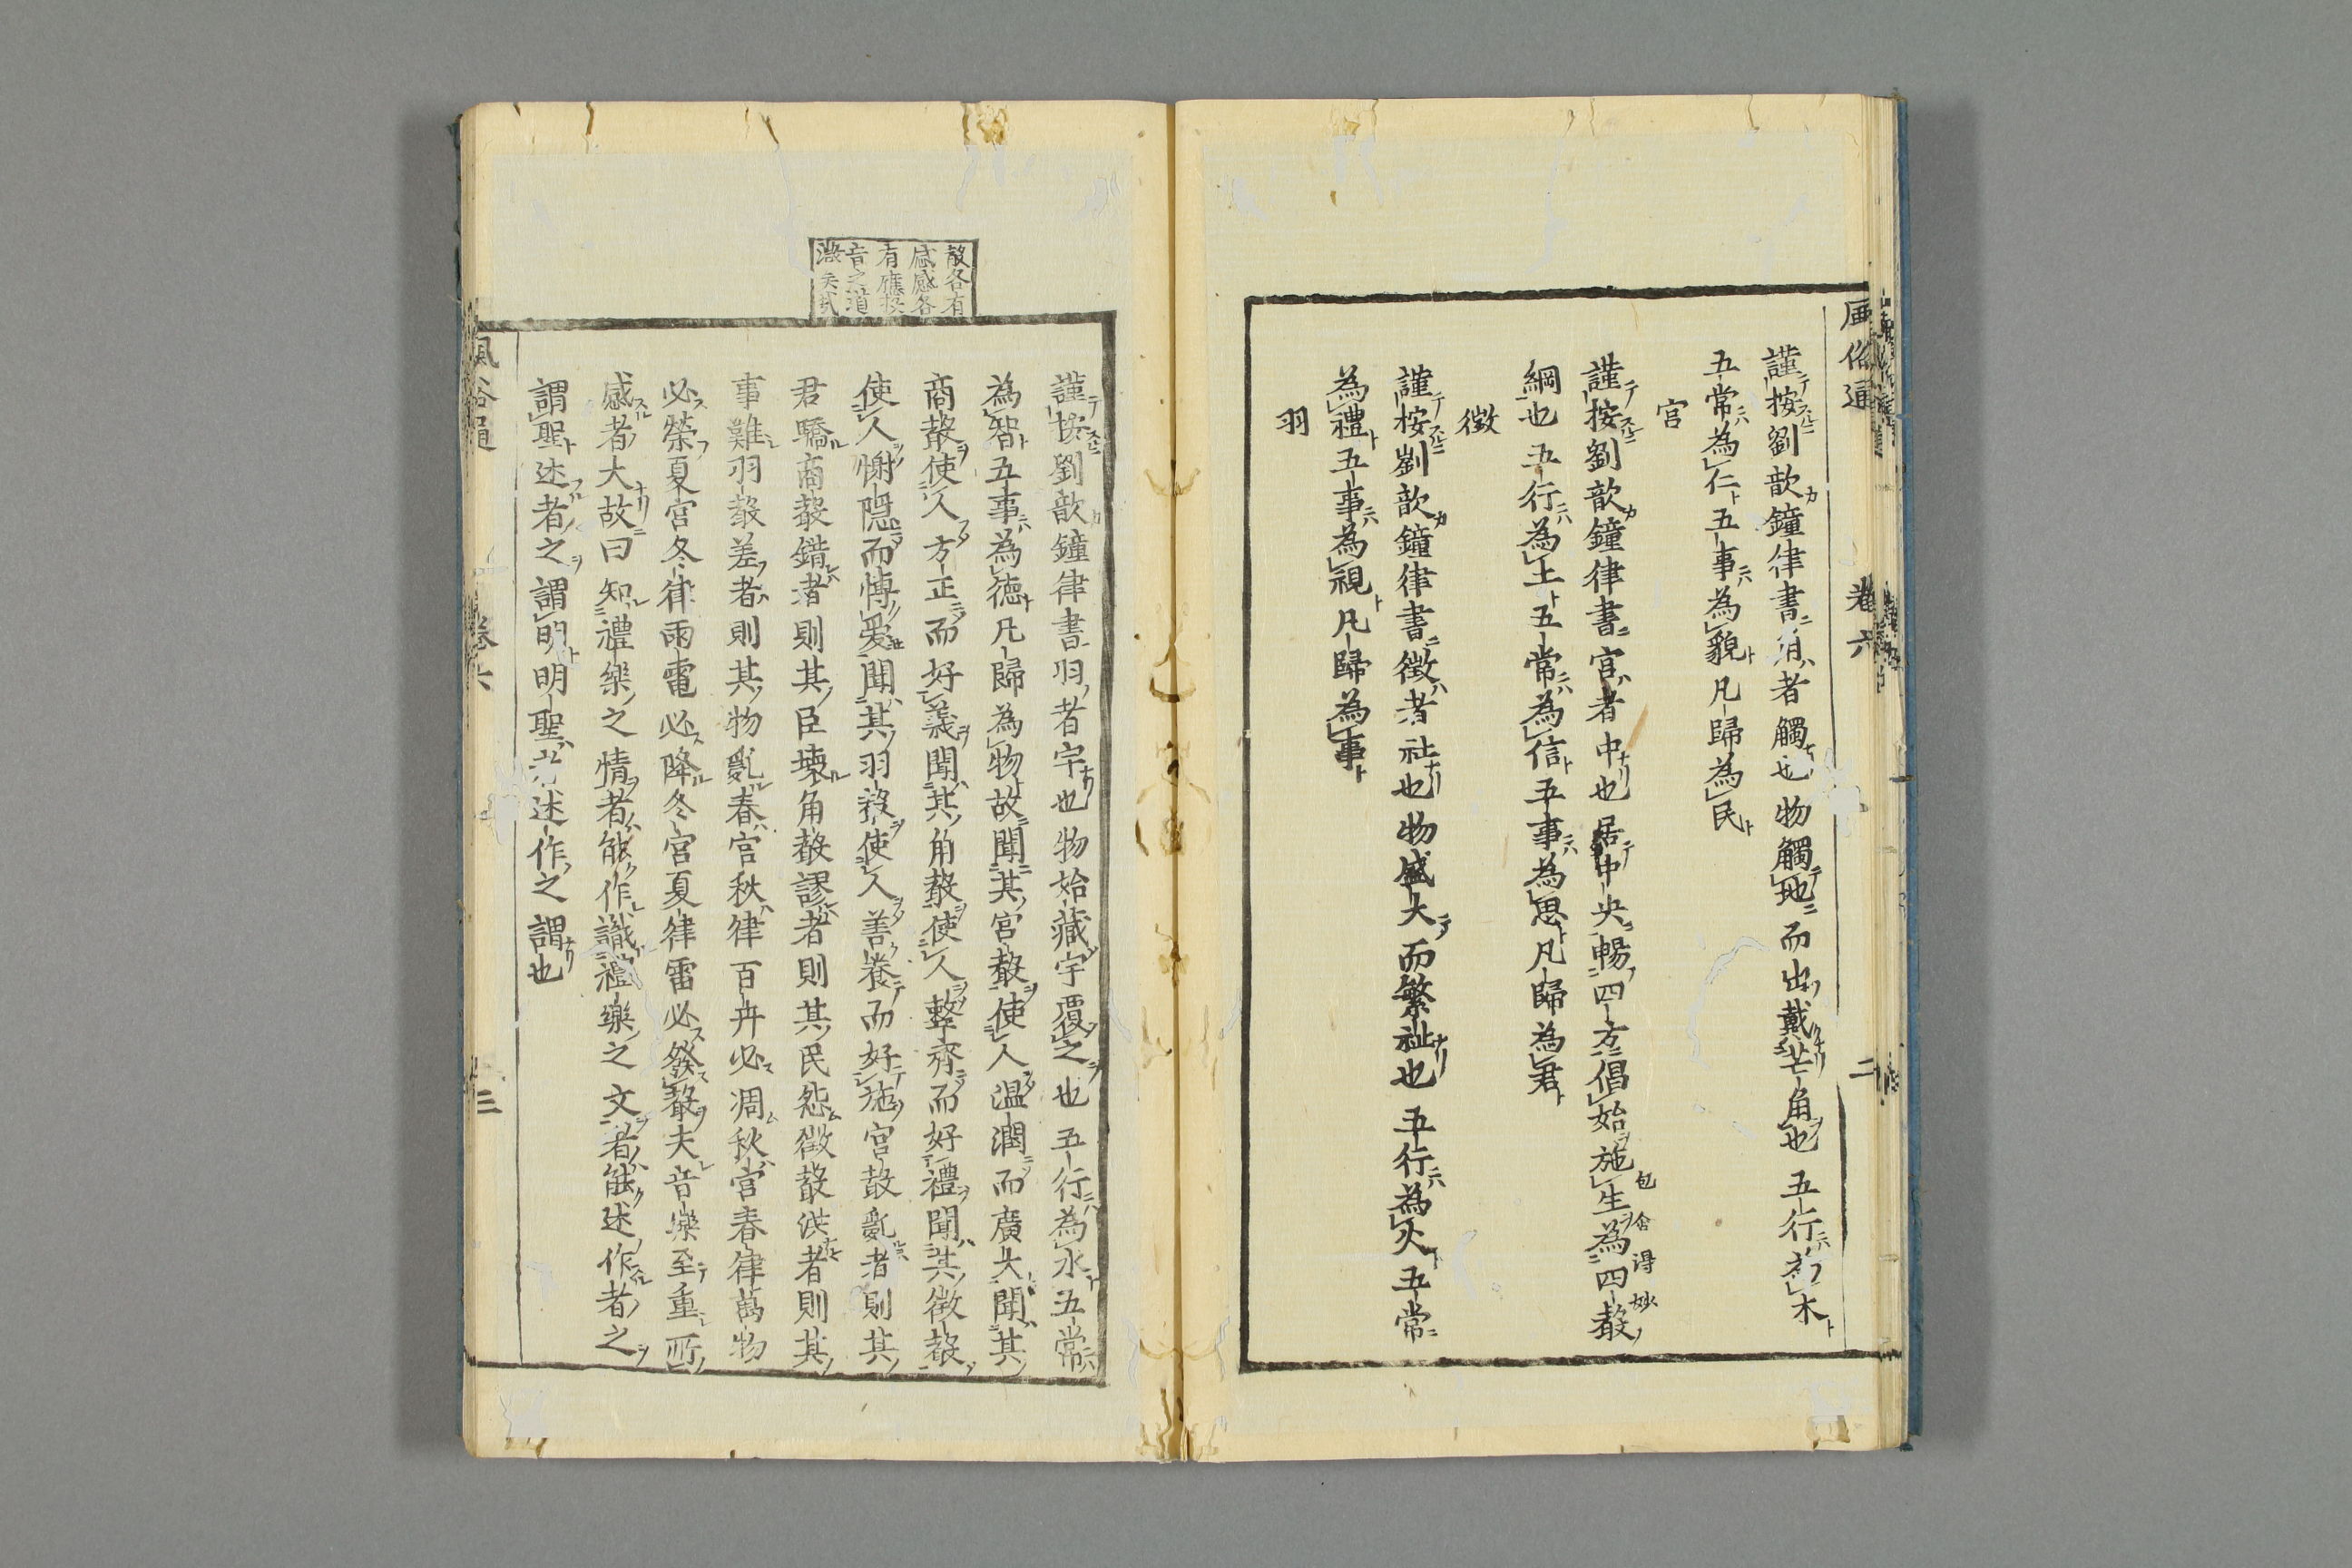 風俗通 卷六 二
謹按劉歆鐘律書角者觸也物觸地而出戴芒角也五行為木
五常為仁五事為貌凡歸為民
宮
謹按劉歆鐘律書宮者中也居中央暢四方倡始施生為四聲
包含得妙
綱也五行為土五常為信五事為思凡歸為君
徵
謹按劉歆鐘律書徵者祉也物盛大而繁祉也五行為火五常
為禮五事為視凡歸為事
羽
聲各有
感感各
有應樂
音之道
微矣哉
謹按劉歆鐘律書羽者宇也物始藏宇覆之也五行為水五常
為智五事為德凡歸為物故聞其宮聲使人溫潤而廣大聞其
商聲使人方正而好義聞其角聲使人整齊而好禮聞其徵聲
使人惻隱而愽愛聞其羽聲使人善養而好施宮聲亂者則其
君驕商聲錯者則其臣壞角聲謬者則其民怨徵聲洪者則其
事難羽聲差者則其物亂春宮秋律百卉必凋秋宮春律萬物
必榮夏宮冬律雨雹必降冬宮夏律雷必發聲夫音樂至重所
感者大故曰知禮樂之情者能作識禮樂之文者能述作者之
謂聖述者之謂明明聖者述作之謂也
風俗通 卷六 三